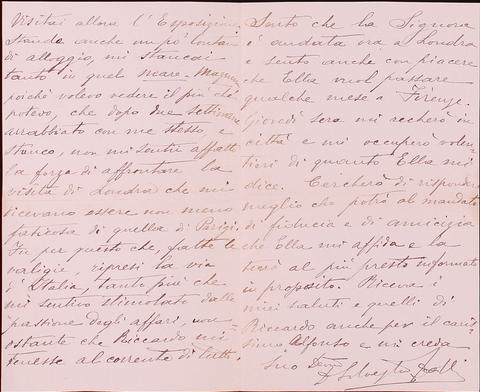 Visitai allora l'Esposizione
stando anche un pò lontano
di alloggio, mi stancai
tanto in quel mare-magnum
poichè volevo vedere il più che
potevo, che dopo due settimane
arrabbiato con me stesso, e
stanco, non mi sentii affatto
la forza di affrontare la
visita di Londra che mi
dicevano essere non meno
faticosa di quella di Parigi.
Fu per questo che, fatte le
valigie, ripresi la via
d'Italia, tanto più che
mi sentivo stimolato dalla
passione degli affari, non
ostante che Riccardo mi
tenesse al corrente di tutto.
Sento che la Signora
è andata ora a Londra
e sento anche con piacere
che Ella vuol passare
qualche mese a Firenze.
Giovedì sera mi recherò in
città e mi occuperò volen=
tieri di quanto Ella mi
dice. Cercherò di rispondere
meglio che potrò al mandato
di fiducia e di amicizia
che Ella mi affida e la
terrò al più presto informato
in proposito. Riceva i
miei saluti e quelli di
Riccardo anche per il caris=
simo Alfonso e mi creda
Suo Devmo